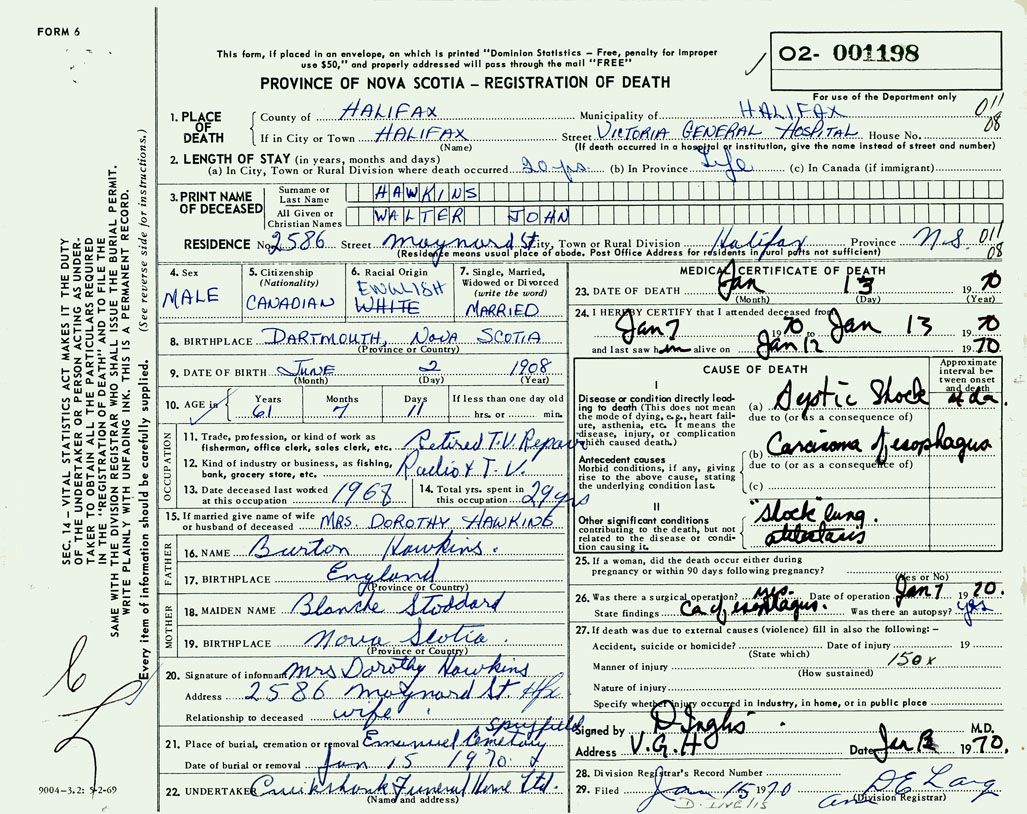 FORM 6
This form, if placed in an envelope, on which is printed "Dominion Statistics – Free, penalty for improper
use $50," and properly addressed will pass through the mail "FREE"
PROVINCE OF NOVA SCOTIA – REGISTRATION OF DEATH
02- 001198
For use of the Department only
1. PLACE OF DEATH
County of HALIFAX Municipality of HALIFAX 011
If in City or Town HALIFAX Street VICTORIA GENERAL HOSPITAL House No. 08
(Name) (If death occurred in a hospital or institution, give the name instead of street and number)
2. LENGTH OF STAY (in years, months and days)
(a) In City, Town or Rural Division where death occurred 20 yrs. (b) In Province Life (c) In Canada (if immigrant)
3. PRINT NAME OF DECEASED
Surname or Last Name HAWKINS
All Given or Christian Names WALTER JOHN
RESIDENCE No. 2586 Street Maynard St. City, Town or Rural Division Halifax Province N.S 011
(Residence means usual place of abode. Post Office Address for residents in rural parts not sufficient) 08
4. Sex MALE
5. Citizenship (Nationality) CANADIAN
6. Racial Origin ENGLISH WHITE
7. Single, Married, Widowed or Divorced (write the word) MARRIED
8. BIRTHPLACE DARTMOUTH, NOVA SCOTIA
(Province or Country)
9. DATE OF BIRTH JUNE 2 1908
(Month) (Day) (Year)
10. AGE in Years 61 Months 7 Days 11 If less than one day old hrs. or min.
OCCUPATION
11. Trade, profession, or kind of work as fisherman, office clerk, sales clerk, etc. Retired T.V. Repair
12. Kind of industry or business, as fishing, bank, grocery store, etc. Radio & T.V.
13. Date deceased last worked at this occupation 1967
14. Total yrs. spent in this occupation 29 yrs
15. If married give name of wife or husband of deceased MRS. DOROTHY HAWKINS
FATHER
16. NAME Burton Hawkins.
17. BIRTHPLACE England
(Province or Country)
MOTHER
18. MAIDEN NAME Blanche Stoddard
19. BIRTHPLACE Nova Scotia.
(Province or Country)
20. Signature of informant Mrs Dorothy Hawkins
Address 2586 Maynard St. Hfx
Relationship to deceased wife
21. Place of burial, cremation or removal Emanuel Cemetery Spryfield
Date of burial or removal Jan 15 1970
22. UNDERTAKER Cruikshank Funeral Home Ltd.
(Name and address)
MEDICAL CERTIFICATE OF DEATH
23. DATE OF DEATH Jan 13 1970
(Month) (Day) (Year)
24. I HEREBY CERTIFY that I attended deceased from
Jan 7 1970 to Jan 13 1970
and last saw him alive on Jan 12 1970
CAUSE OF DEATH
Approximate interval between onset and death
I
Disease or condition directly leading to death (This does not mean the mode of dying, e.g., heart failure, asthenia, etc. It means the disease, injury, or complication which caused death.)
(a) Septic Shock
due to (or as a consequence of)
Antecedent causes
Morbid conditions, if any, giving rise to the above cause, stating the underlying condition last.
(b) Carcinoma of esophagus
due to (or as a consequence of)
(c)
II
Other significant conditions contributing to the death, but not related to the disease or condition causing it.
"shock" lung.
atelectasis
25. If a woman, did the death occur either during
pregnancy or within 90 days following pregnancy?
(Yes or No)
26. Was there a surgical operation? yes. Date of operation Jan 7 1970.
State findings Ca of esophagus. Was there an autopsy? yes
27. If death was due to external causes (violence) fill in also the following: –
Accident, suicide or homicide? Date of injury 19
(State which) 150x
Manner of injury
(How sustained)
Nature of injury
Specify whether injury occurred in Industry, in home, or in public place
Signed by D Inglis M.D.
Address V.G.H Date Jan 13 1970.
28. Division Registrar's Record Number
29. Filed Jan 15 1970
D. INGLIS
(Division Registrar)
SEC. 14 – VITAL STATISTICS ACT MAKES IT THE DUTY
OF THE UNDERTAKER OR PERSON ACTING AS UNDER-
TAKER TO OBTAIN ALL THE PARTICULARS REQUIRED
IN THE "REGISTRATION OF DEATH" AND TO FILE THE
SAME WITH THE DIVISION REGISTRAR WHO SHALL ISSUE THE BURIAL PERMIT.
WRITE PLAINLY WITH UNFADING INK. THIS IS A PERMANENT RECORD.
Every item of information should be carefully supplied. (See reverse side for instructions.)
9004-3.2: 5-2-69